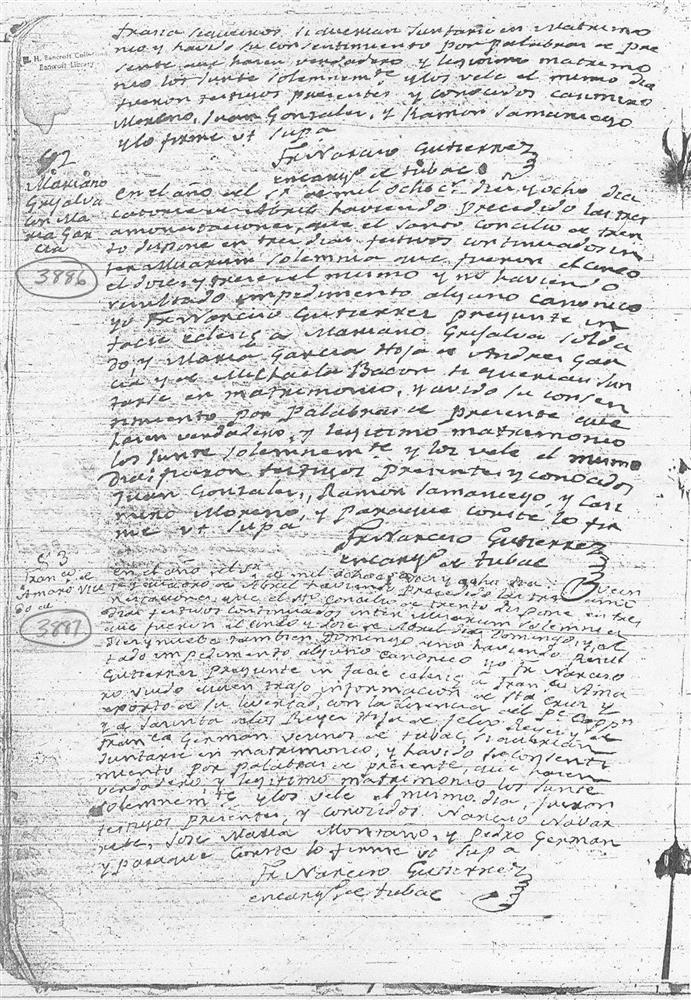 H. H. Bancroft Collection
Bancroft Library
si querian Juntarse en Matrimo
nio y havido su consentimiento por palabras de pre
sente que hacen verdadero y legitimo matrimo
nio los Junte Solemnemte y los vele el mismo dia
fueron testigos presentes y conocidos Casimiro
Moreno, Juan Gonzalez, y Ramon Samaniego
y lo firme vt supa
Fr Narciso Gutierrez
encargo de tubac
52
Mariano
Grijalva
con Ma
ria Gar
cia
3886
En el año del Sr de mil ochoct diez y ocho dia
catorce de Abril haviendo precedido las tres
amonestaciones, que el Santo Concilio de tren
to dispone en tres dias festivos continuados in
ter Missarum Solemnia que fueron el cinco
el doce, y trece del mismo y no haviendo
resultado impedimento alguno canonico
yo Fr Narciso Gutierrez pregunte in
facie eclesie a Mariano Grijalva solda
do, y Maria Garcia Hija de Andres Gar
cia y de Michaela Bacon si querian Jun
tarse en matrimonio, y avido su consen
timiento por palabras de presente que
hacen verdadero, y legitimo matrimonio
los Junte solemnemte y los vele el mismo
Dia fueron testigos presentes, y conocidos
Juan Gonzalez, Ramon Samaniego, y Casi
miro Moreno, y paraque conste lo fir
me vt supa
Fr Narciso Gutierrez
encargo de tubac
53
Franco
Amaro Viu
do
3887
En el año del Sr de mil ochoct diez y ocho dia vein
te quatro de Abril haviendo precedido las tres amo
nestaciones, que el Sto Concilio de trento dispone en tres
dias festivos continuados inter Missarum Solemnia
que fueron el cinco y doce de Abril Dia Domingo, y el
diez y nueve tambien Domingo y no haviendo Resul
tado impedimento alguno canonico yo Fr Narciso
Gutierrez pregunte in facie eclesie a Franco Ama
ro Viudo quien trajo informacion de Sta Cruz y
de su livertad, con la licencia del Pe Cappn
y a Jacinta de los Reyes Hija de Felix Reyes y de
Franca German vecinos de tubac, si querian
Juntarse en matrimonio, y havido su consenti
miento por palabras de presente, que hacen
verdadero, y legitimo matrimonio los Junte
solemnemte y los vele el mismo dia, fueron
testigos presentes, y conocidos Narciso Navar
rete, Jose Maria Montaño, y Pedro German
y paraque conste lo firme vt supa
Fr Narciso Gutierrez
encargo de tubac